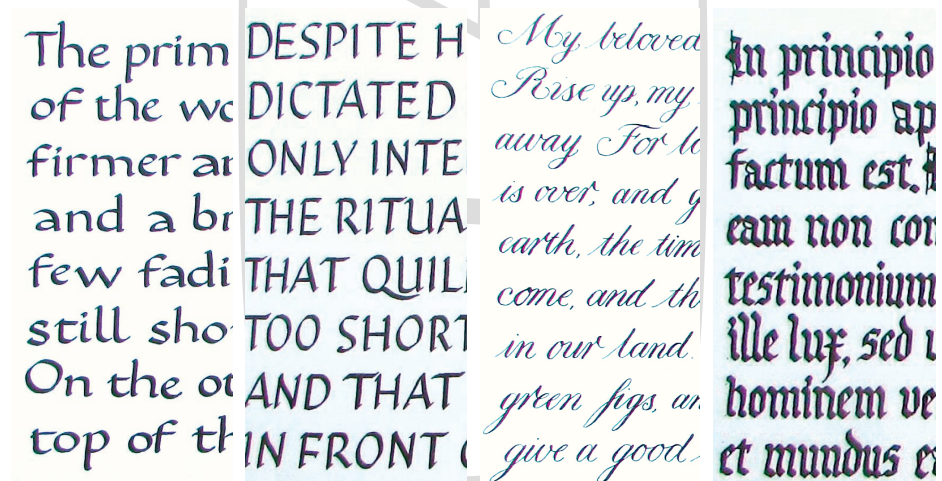 The prim
of the wo
firmer ar
and a br
few fadi
still sho
On the ot
top of th
DESPITE H
DICTATED
ONLY INTE
THE RITUA
THAT QUILL
TOO SHORT
AND THAT
IN FRONT
My beloved
Rise up, my
away For lo
is over, and g
earth, the tim
come, and th
in our land.
green figs, an
give a good
In principio
principio ap
factum est.
eam non con
testimonium
ille lux, sed
hominem ve
et mundus ea